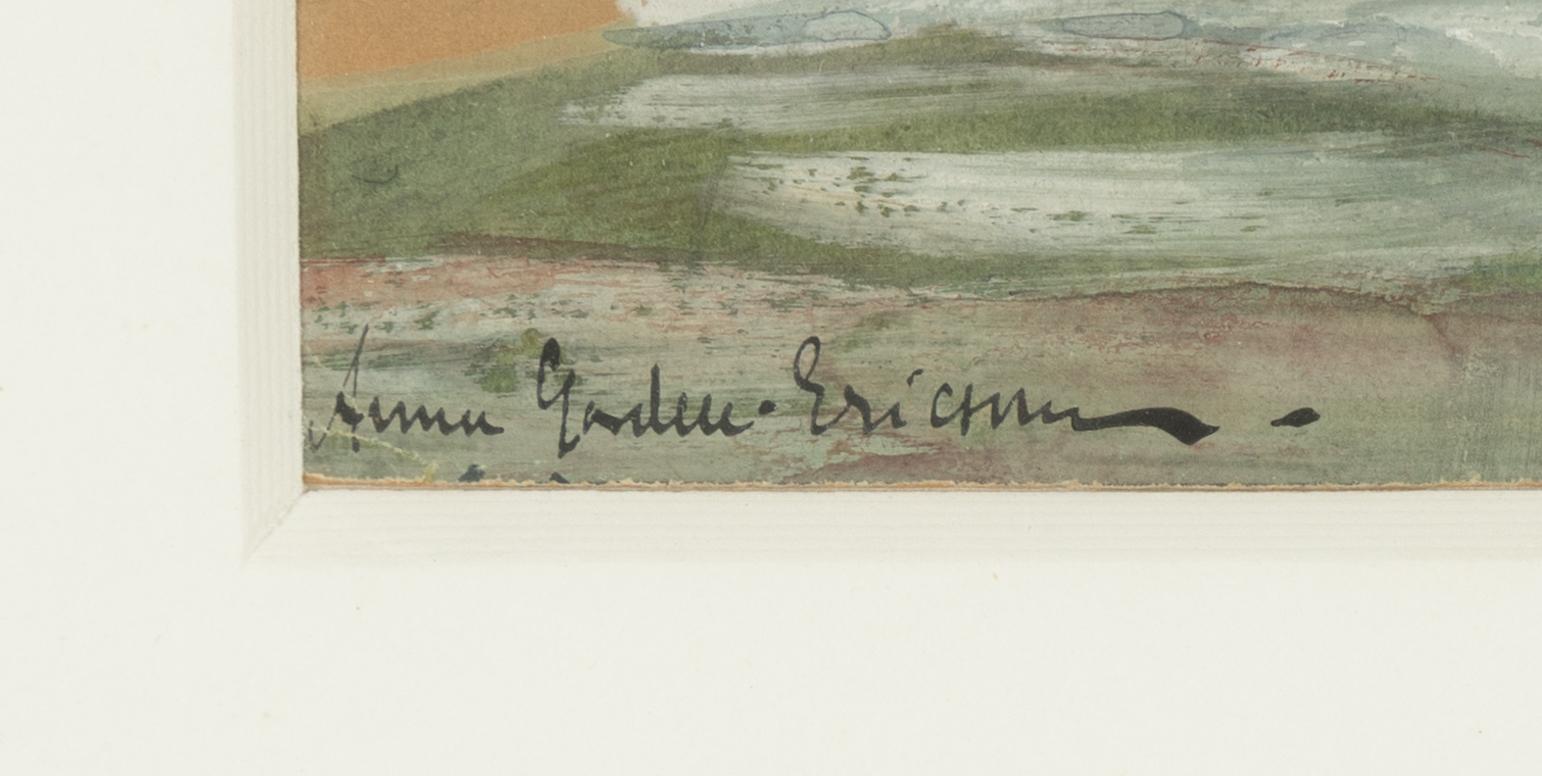 Anna Gardell-Ericson -